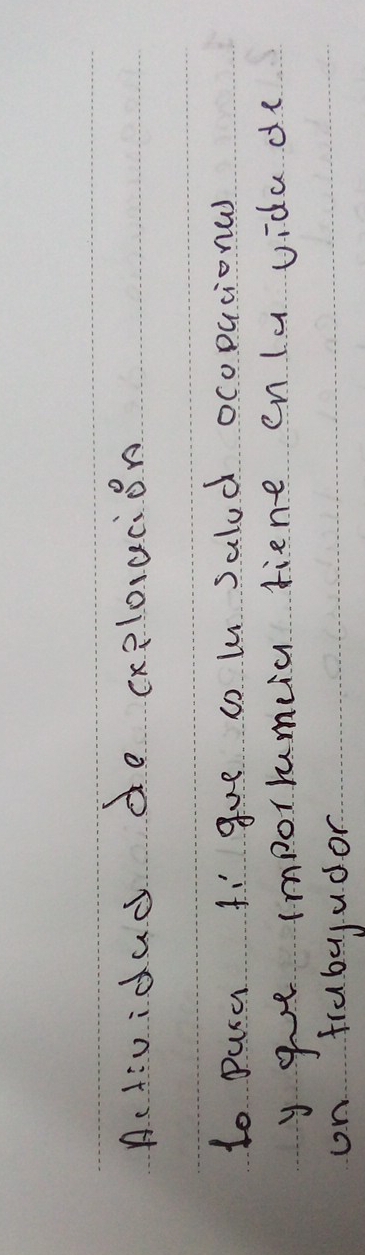 Actividad de exploración
1o para ti que es la salud ocopacional
y que importamcia tiene en la vida de
un trabajador